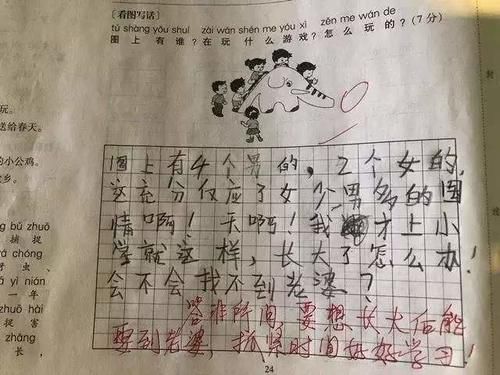 【看图写话】
tú shàng yǒu shuí zài wán shén me yóu xì zěn me wán de
图上有谁？在玩什么游戏？怎么玩的？(7分)
玩。
送给春天。
的小公鸡。
乡。
bǔ zhuō
捕捉
chóng
虫、
yì nián
一年
zhuō hài
捉害
zhǎng
长，
图上有4个男的，2个女的，
这充分仅应了女少男多的国
情啊！天啊！我才上小
学就这样，长大了怎么办！
会不会找不到老婆？
答非所问 要想长大后能
娶到老婆，抓紧时间好好学习！
24